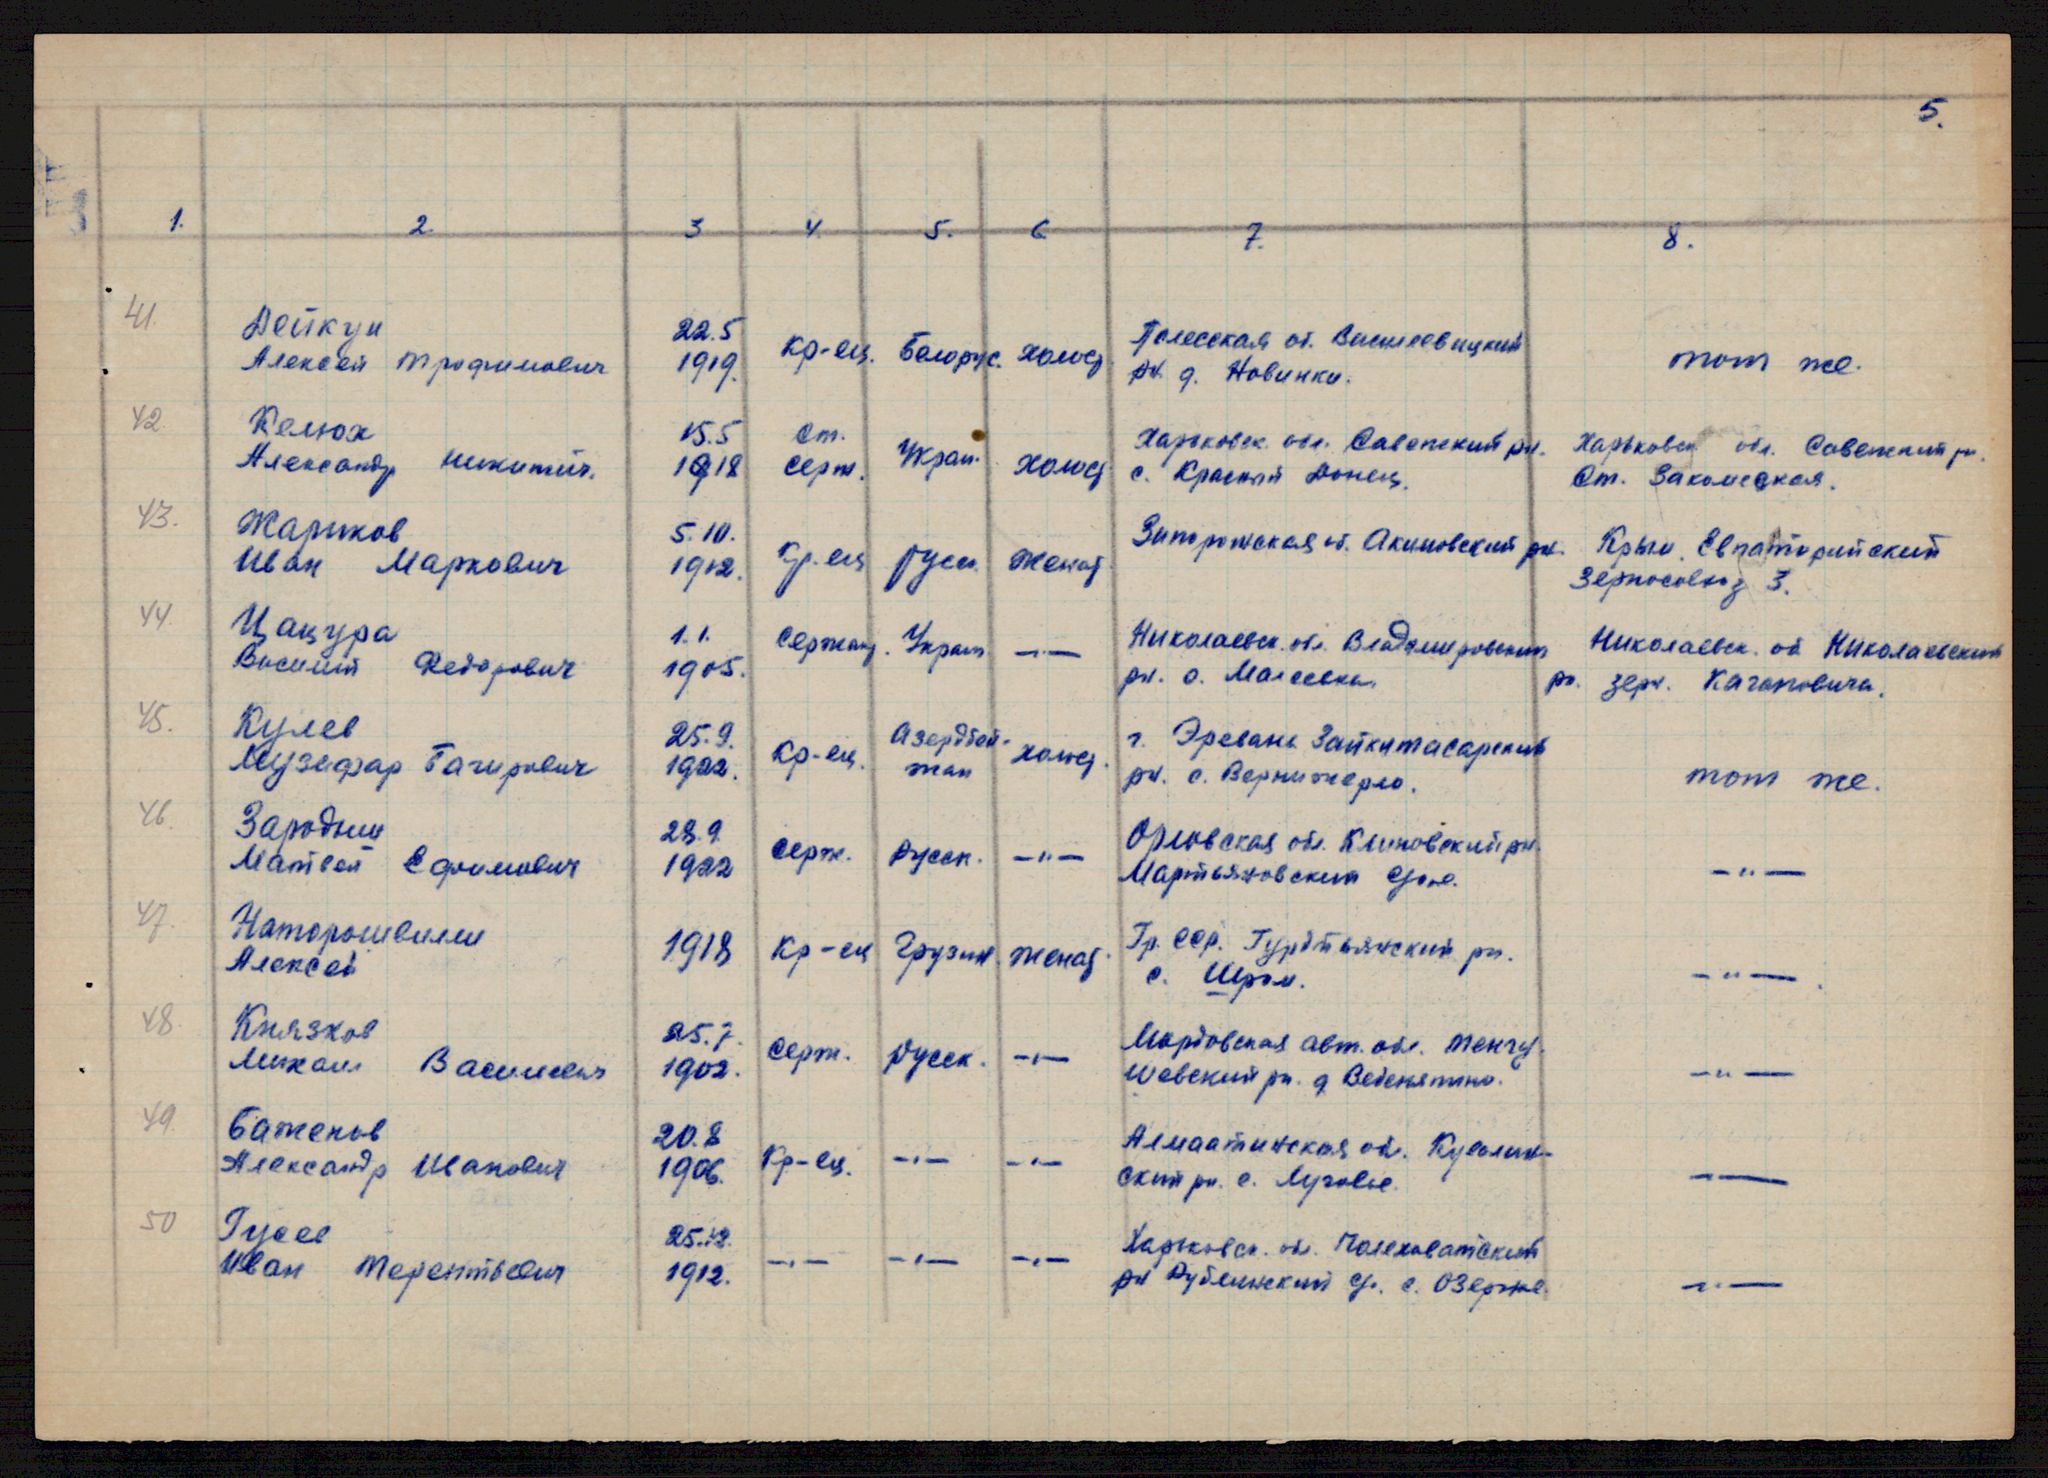 5.
1. 2. 3 4. 5. 6 7. 8.
41. Дейкун 22.5 Кр-ец. Белорус. холост. Полесская об. Василевицкий тот же.
Алексей Трофимович 1919. рн. д. Новинки.
42. Келюх 15.5 Ст. Украи. холост Харьковск. обл. Савенский рн. Харьковск обл. Савенский рн.
Александр Никитич. 1918 серж. с. Красный Донец. Ст.
43. Жариков 5.10. Кр-ец русск. женат. Запорожская об. Акимовский рн. Крым. Евпаторийский
Иван Маркович 1912. Зерносовхоз 3.
44. Цацура 1.1. Сержант. Украин —"— Николаевск. обл. Владимировский Николаевск. об Николаевский
Василий Федорович 1905. рн. с. рн. зерн. Кагановича.
45. Кулев 25.9. Кр-ец. Азердбей- холост. г. Эревань тот же.
Музафар Багирович 1922. жан рн. с.
46. Зародыш 28.9. серж. Русск. —"— Орловская обл. Клиновский рн. —"—
Матвей Ефимович 1922 Мартьяновский
47. Наторошвили 1918 Кр-ец Грузин женат. Гр. ССР. рн. —"—.
Алексей с. Шром.
48. Князков 25.7. серж. Русск. —"— Мордовская авт. обл. Тенгу- —"—
Михаил Васильевич 1902. шевский рн. д Веденяпино.
49. Баженов 20.8 Кр-ец. —"— —"— Алмаатинская об. —"—
Александр Иванович 1906. ский рн. с. Луговое.
50 Гусев 25.12. —"— —"— —"— Харьковск. обл. —"—
Иван Терентьевич 1912. рн с.